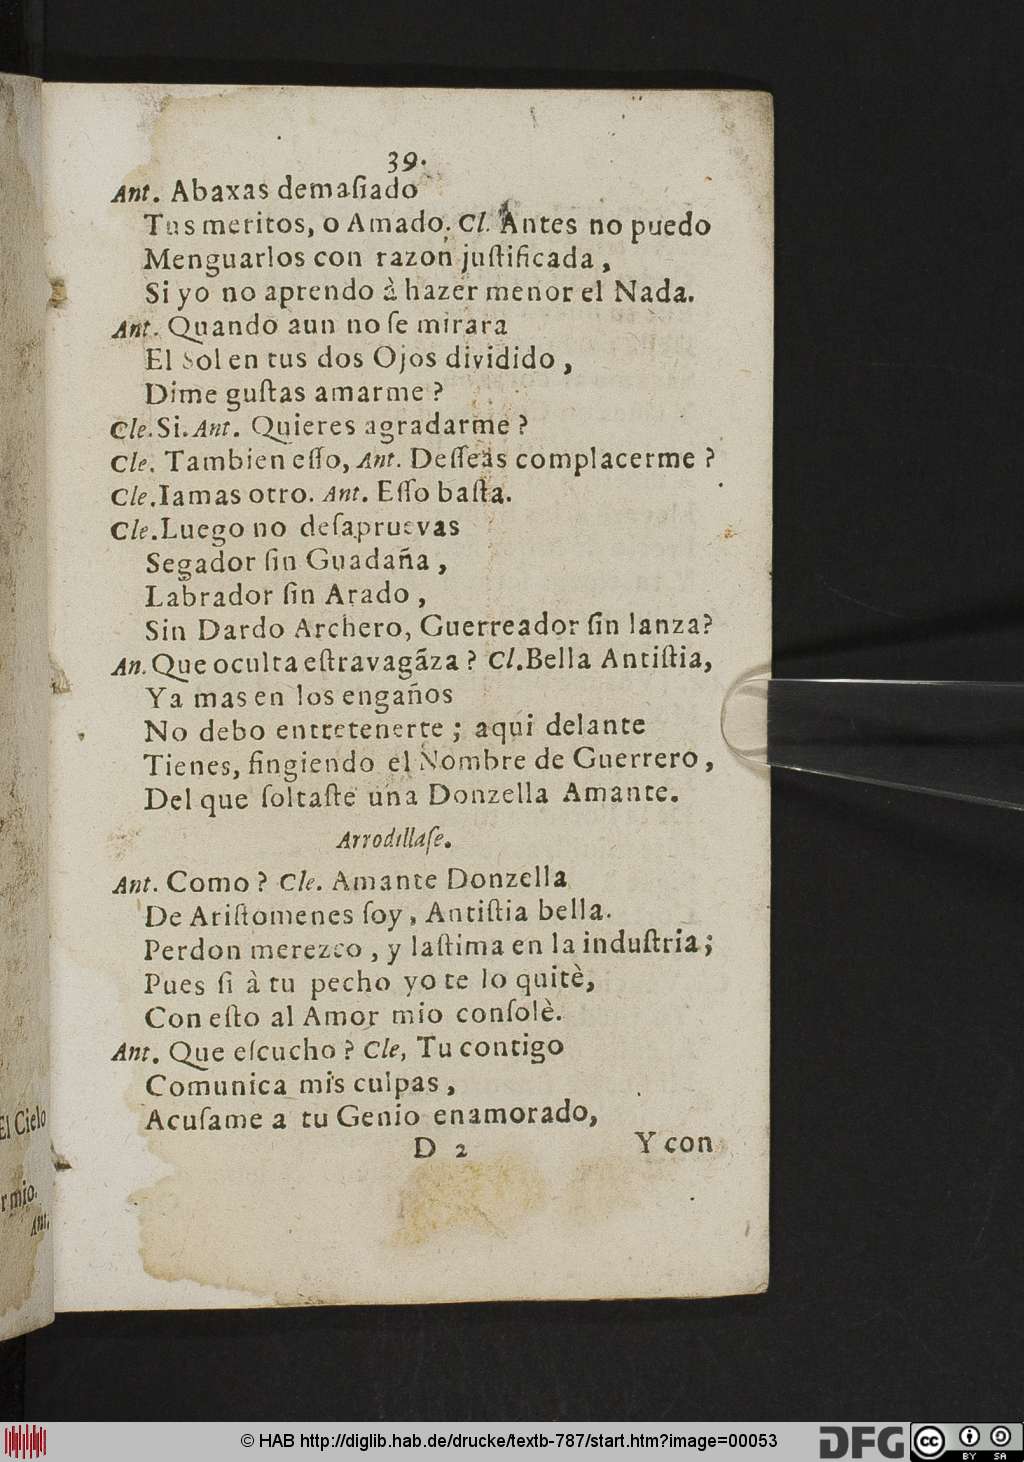 39.
Ant. Abaxas demaſiado
Tus meritos, o Amado. Cl. Antes no puedo
Menguarlos con razon juſtificada,
Si yo no aprendo à hazer menor el Nada.
Ant. Quando aun no ſe mirara
El Sol en tus dos Ojos dividido,
Dime guſtas amarme?
Cle. Si. Ant. Quieres agradarme?
Cle. Tambien eſſo, Ant. Deſſeas complacerme?
Cle. Iamas otro. Ant. Eſſo baſta.
Cle. Luego no deſapruevas
Segador ſin Guadaña,
Labrador ſin Arado,
Sin Dardo Archero, Guerreador ſin lanza?
An. Que oculta eſtravagãza? Cl. Bella Antiſtia,
Ya mas en los engaños
No debo entretenerte; aqui delante
Tienes, fingiendo el Nombre de Guerrero,
Del que ſoltaſte una Donzella Amante.
Arrodillaſe.
Ant. Como? Cle. Amante Donzella
De Ariſtomenes ſoy, Antiſtia bella.
Perdon merezco, y laſtima en la induſtria;
Pues ſi à tu pecho yo te lo quitè,
Con eſto al Amor mio conſolè.
Ant. Que eſcucho? Cle, Tu contigo
Comunica mis culpas,
Acuſame a tu Genio enamorado,
D 2 Y con
El Cielo
r mio.
Ant.
© HAB http://diglib.hab.de/drucke/textb-787/start.htm?image=00053
DFG
cc BY SA